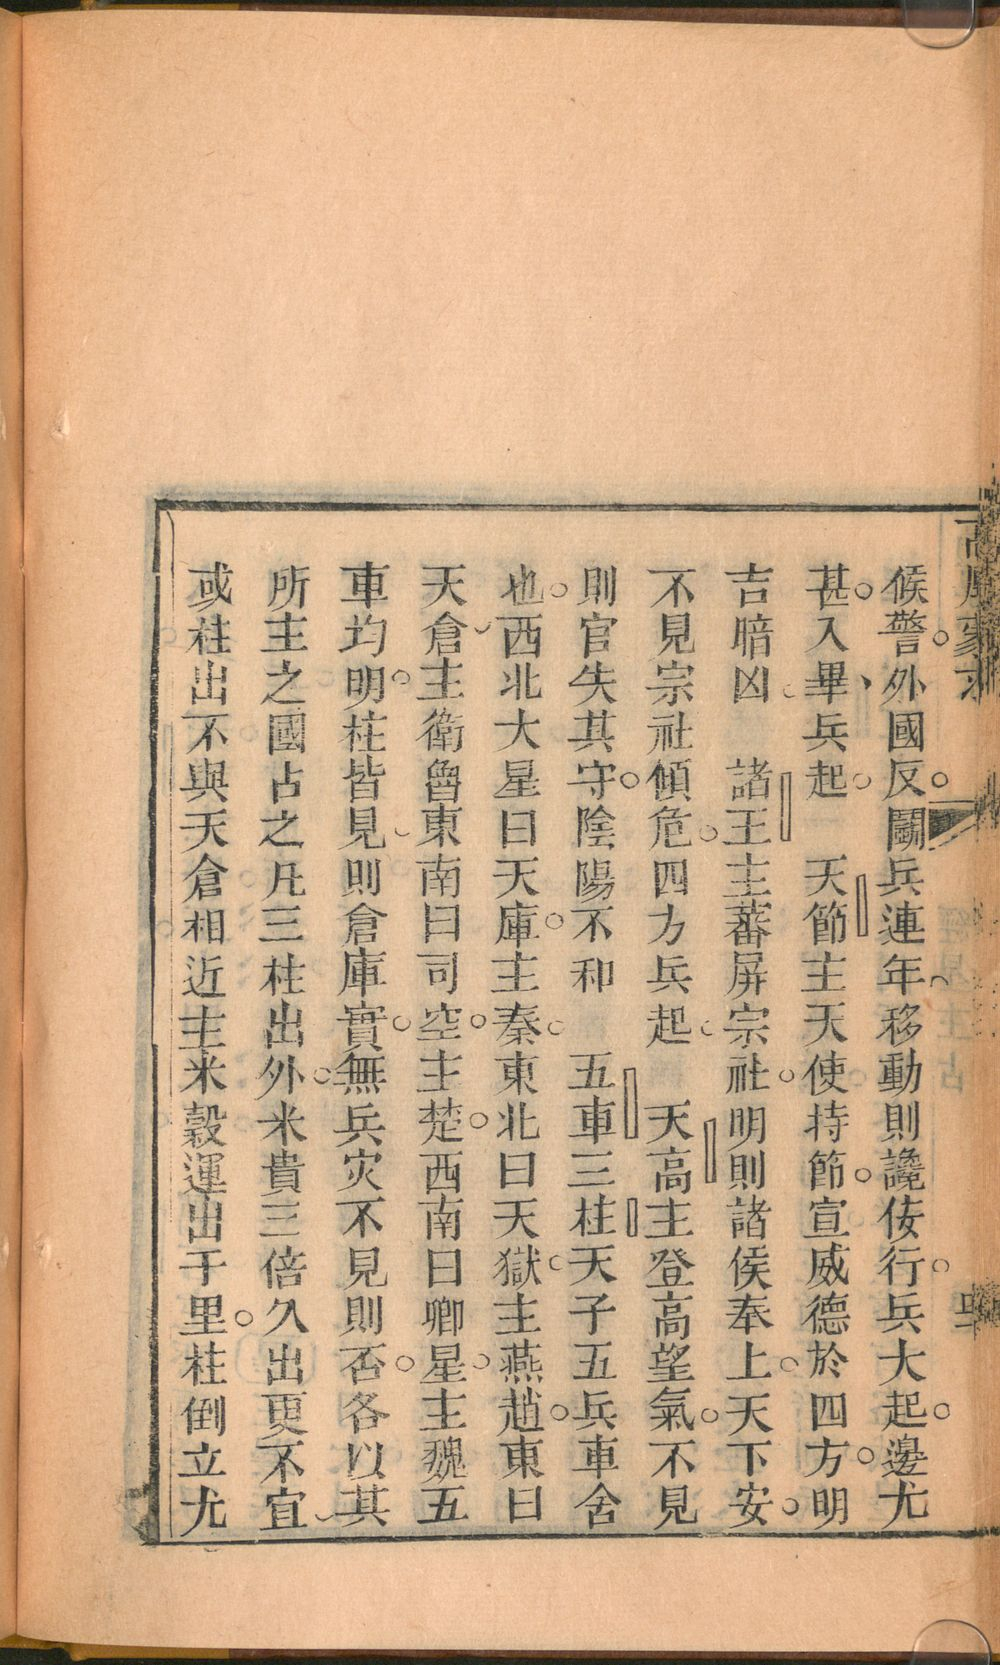 候警外國反鬭兵連年移動則讒佞行兵大起邊尤
甚入畢兵起　天節主天使持節宣威德於四方明
吉暗凶　諸王主蕃屏宗社明則諸侯奉上天下安
不見宗社傾危四方兵起　天高主登高望氣不見
則官失其守陰陽不和　五車三柱天子五兵車舍
也西北大星曰天庫主秦東北曰天獄主燕趙東曰
天倉主衛魯東南曰司空主楚西南曰卿星主魏五
車均明柱皆見則倉庫實無兵灾不見則否各以其
所主之國占之凡三柱出外米貴三倍久出更不宜
或柱出不與天倉相近主米穀運出千里柱倒立尤